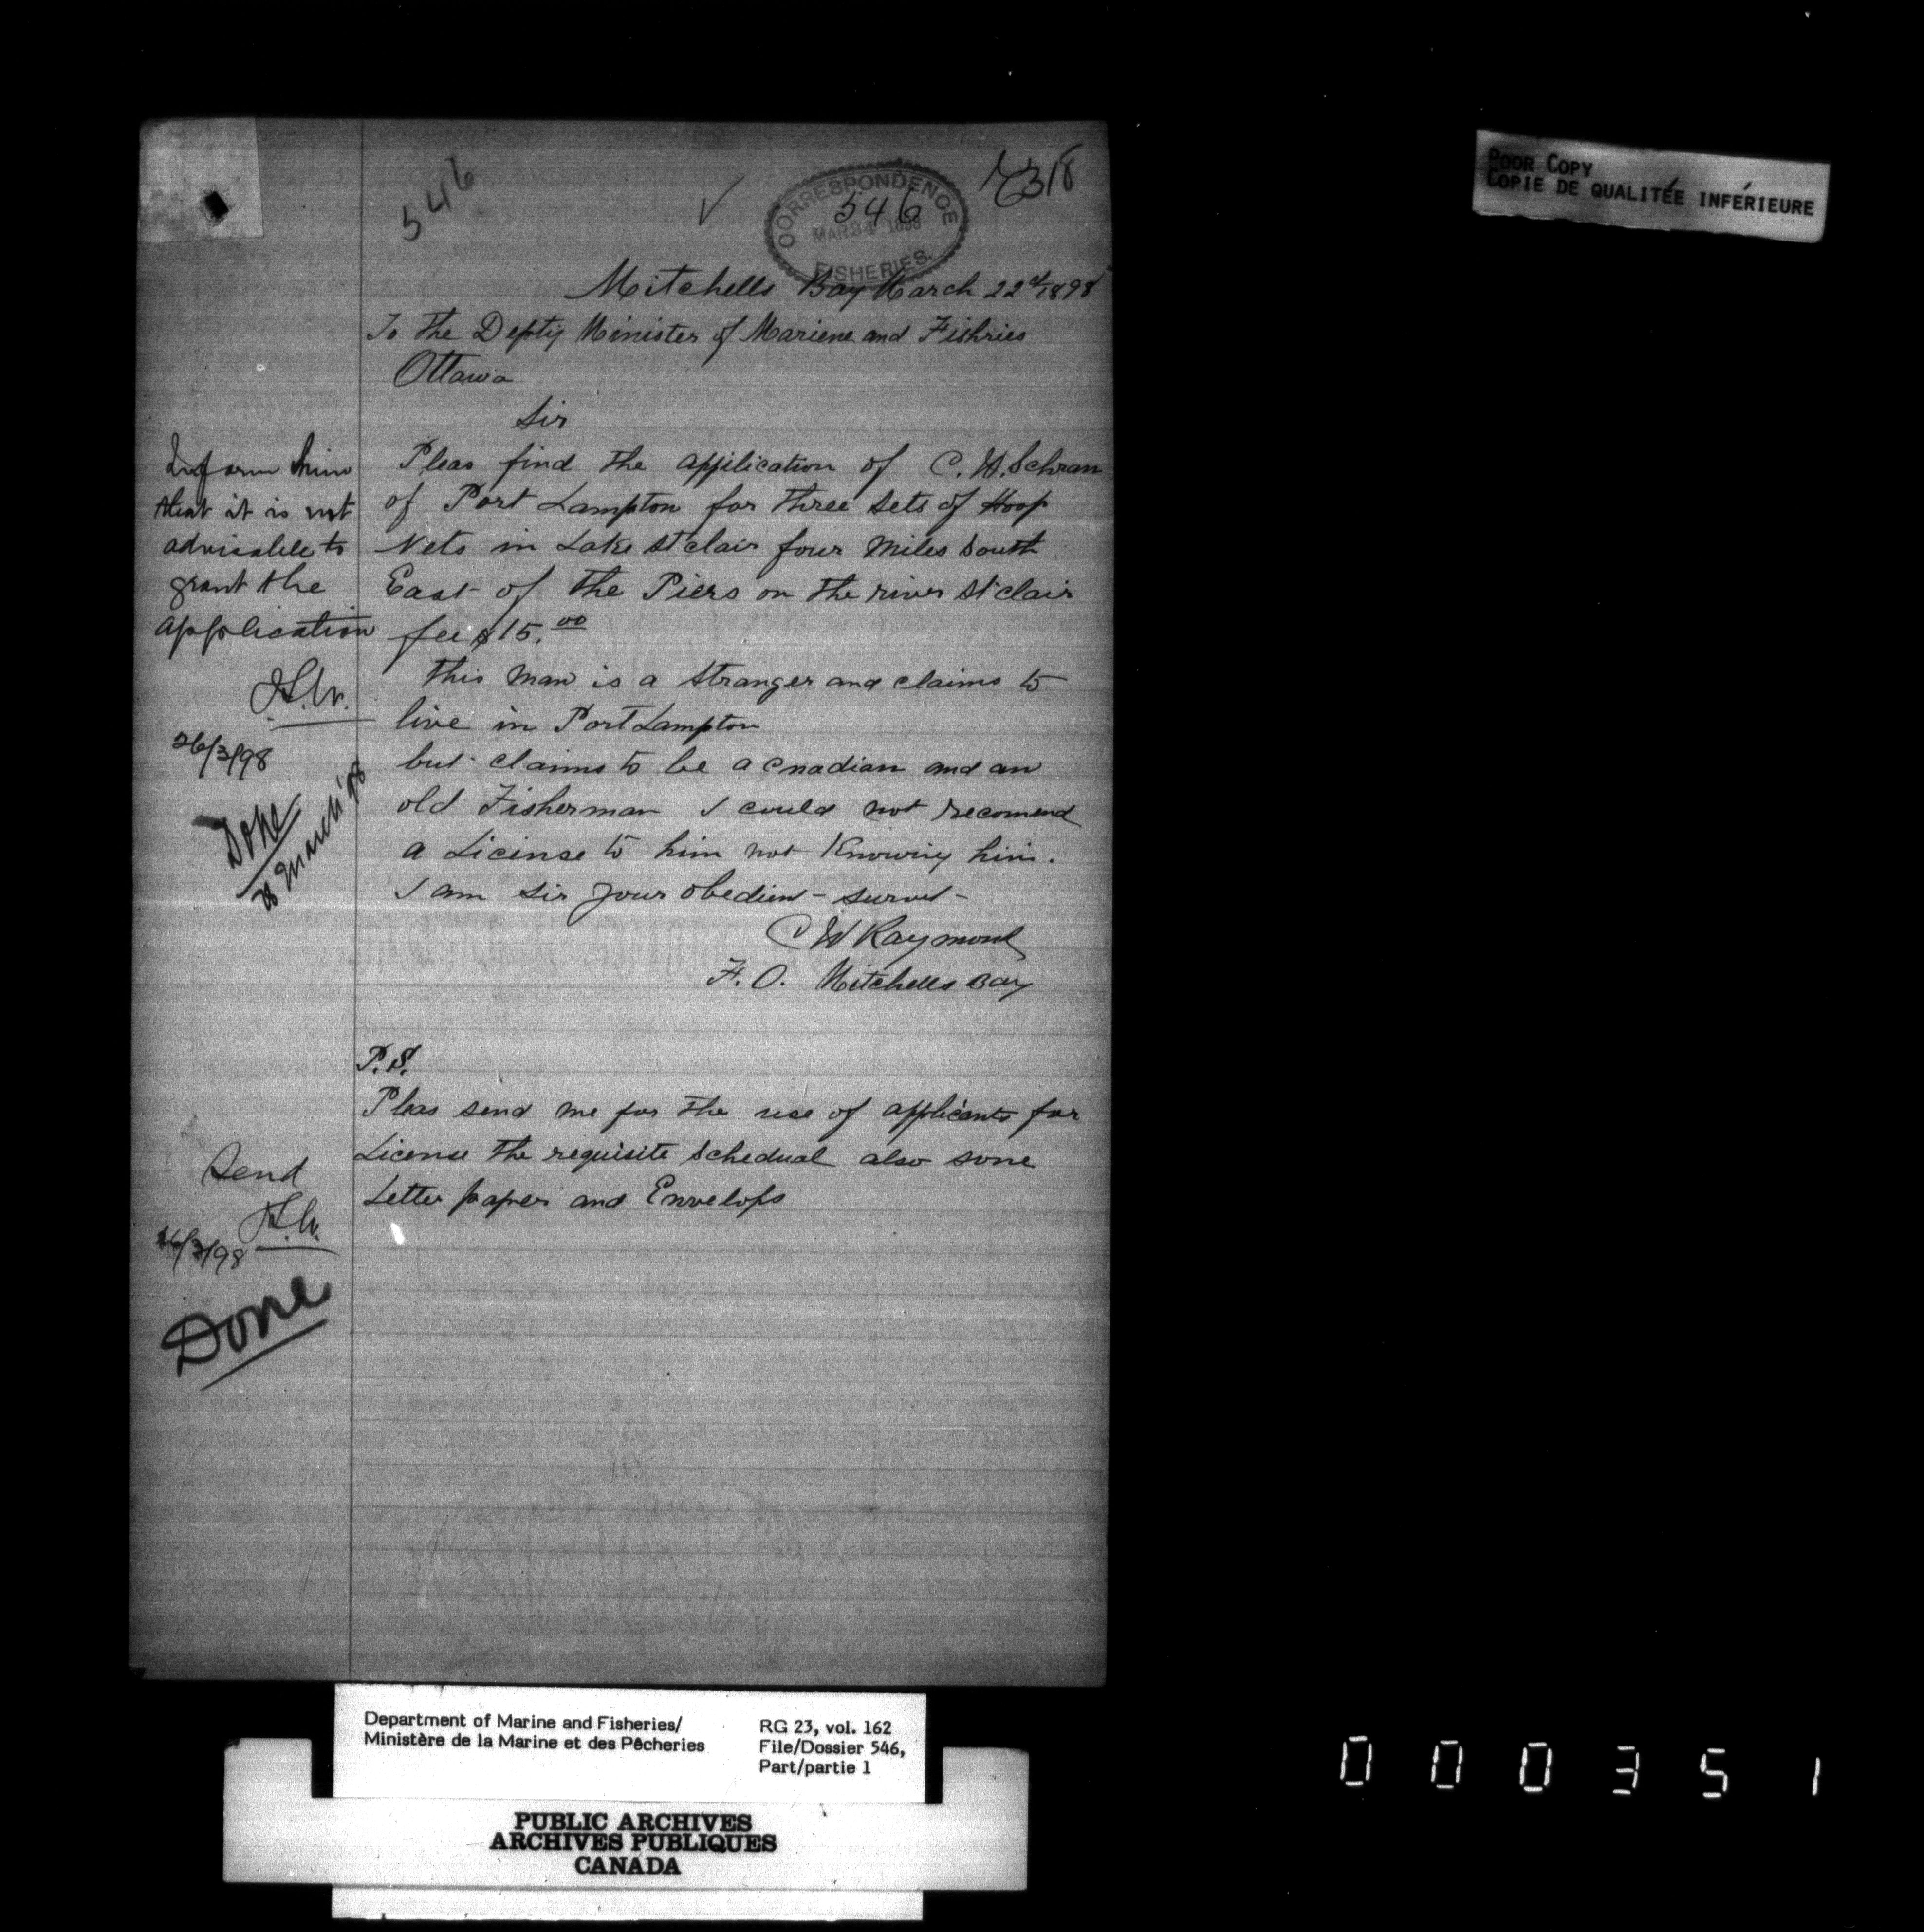 546
CORRESPONDENCE
546
MAR 24 1898
FISHERIES.
Mitchells Bay March 22d/1898
To the Depty Minister of Mariene and Fishries
Ottawa
Sir
Pleas find the application of C. W. Schram
of Port Lampton for three sets of Hoop
Nets in Lake St clair four Miles South
East of the Piers on the river St clair
fee $15.00
this man is a stranger and claims to
live in Port Lampton
but claims to be a cnadian and an
old Fisherman I could not recomend
a License to him not Knowing him.
I am Sir your obedient servnt
C W Raymond
F. O. Mitchells Bay
P.S.
Pleas send me for the use of applicants for
License the requisite schedual also some
Letter paper and Envelops
Inform him
that it is not
advisable to
grant the
application
26/3/98
Done
March '98
Send
26/3/98
Done
POOR COPY
COPIE DE QUALITÉE INFÉRIEURE
Department of Marine and Fisheries/
Ministère de la Marine et des Pêcheries
RG 23, vol. 162
File/Dossier 546,
Part/partie 1
PUBLIC ARCHIVES
ARCHIVES PUBLIQUES
CANADA
000351